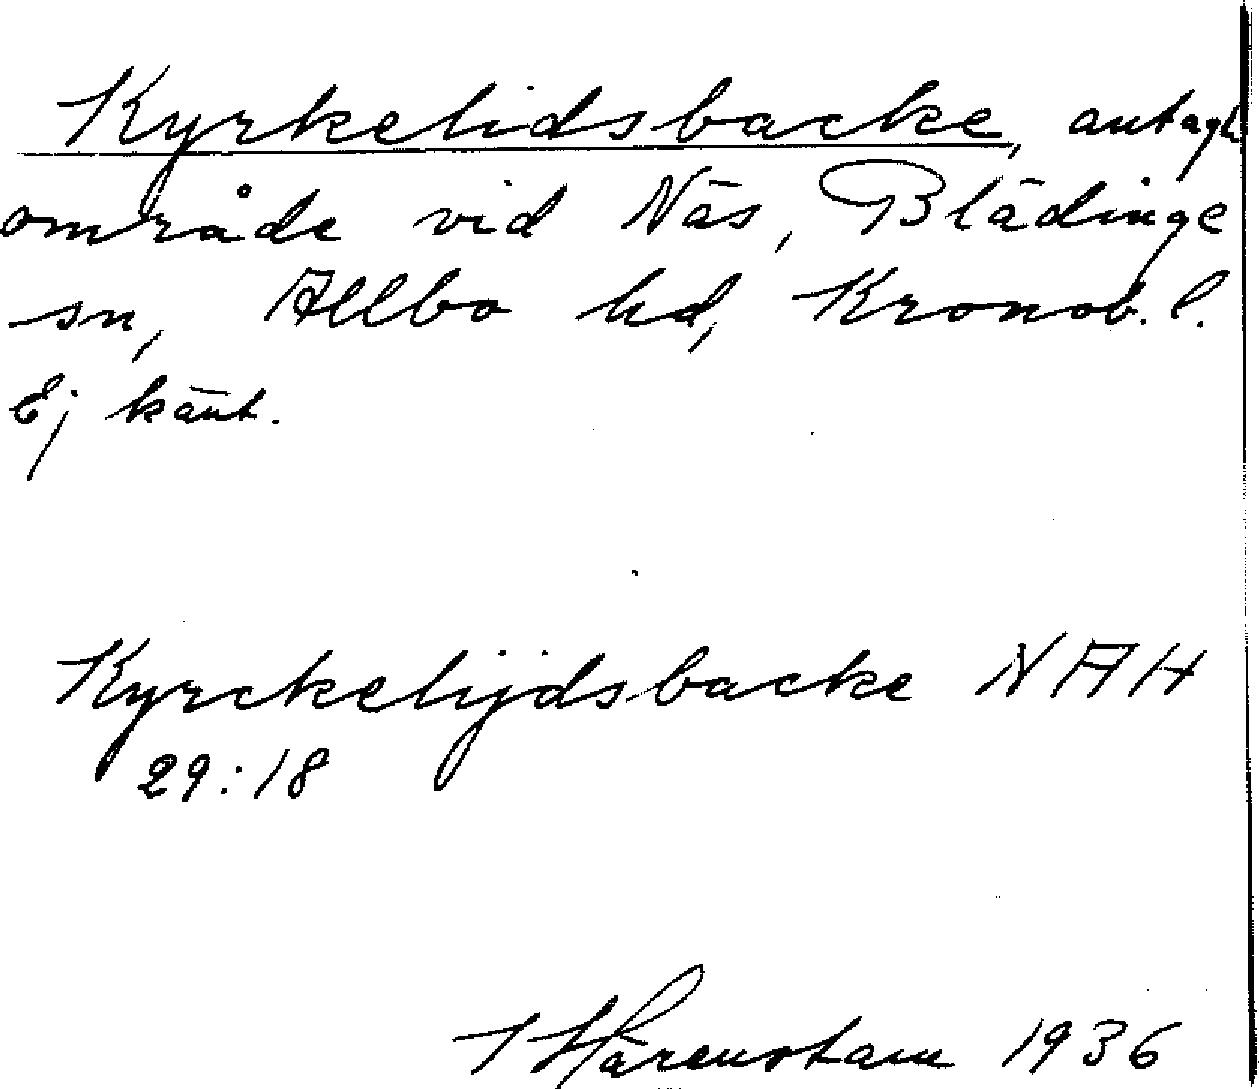 Kyrkelidsbacke, antagl
område vid Näs, Blädinge
sn, Allbo hd, Kronob. l.
Ej känt.
Kyrckelijdsbacke NAH
29:18
Härenstam 1936